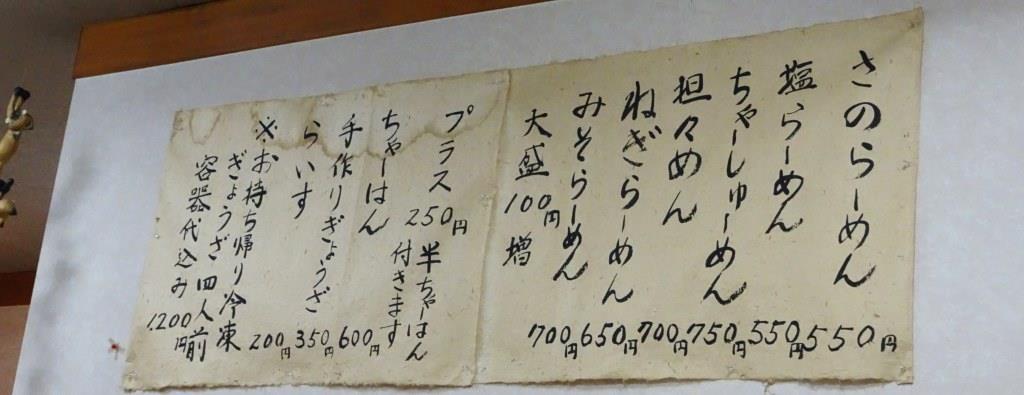 さのらーめん 550円
塩らーめん 550円
ちゃーしゅーめん 750円
担々めん 700円
ねぎらーめん 650円
みそらーめん 700円
大盛100円増
プラス250円半ちゃーはん
付きます
ちゃーはん 600円
手作りぎょうざ 350円
らいす 200円
※お持ち帰り冷凍
ぎょうざ四人前
容器代込み 1.200円